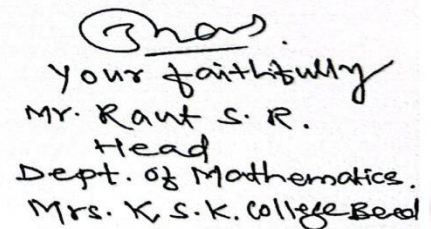 your faithfully
Mr. Raut S. R.
Head
Dept. of Mathematics.
Mrs. K. S. K. College Beed